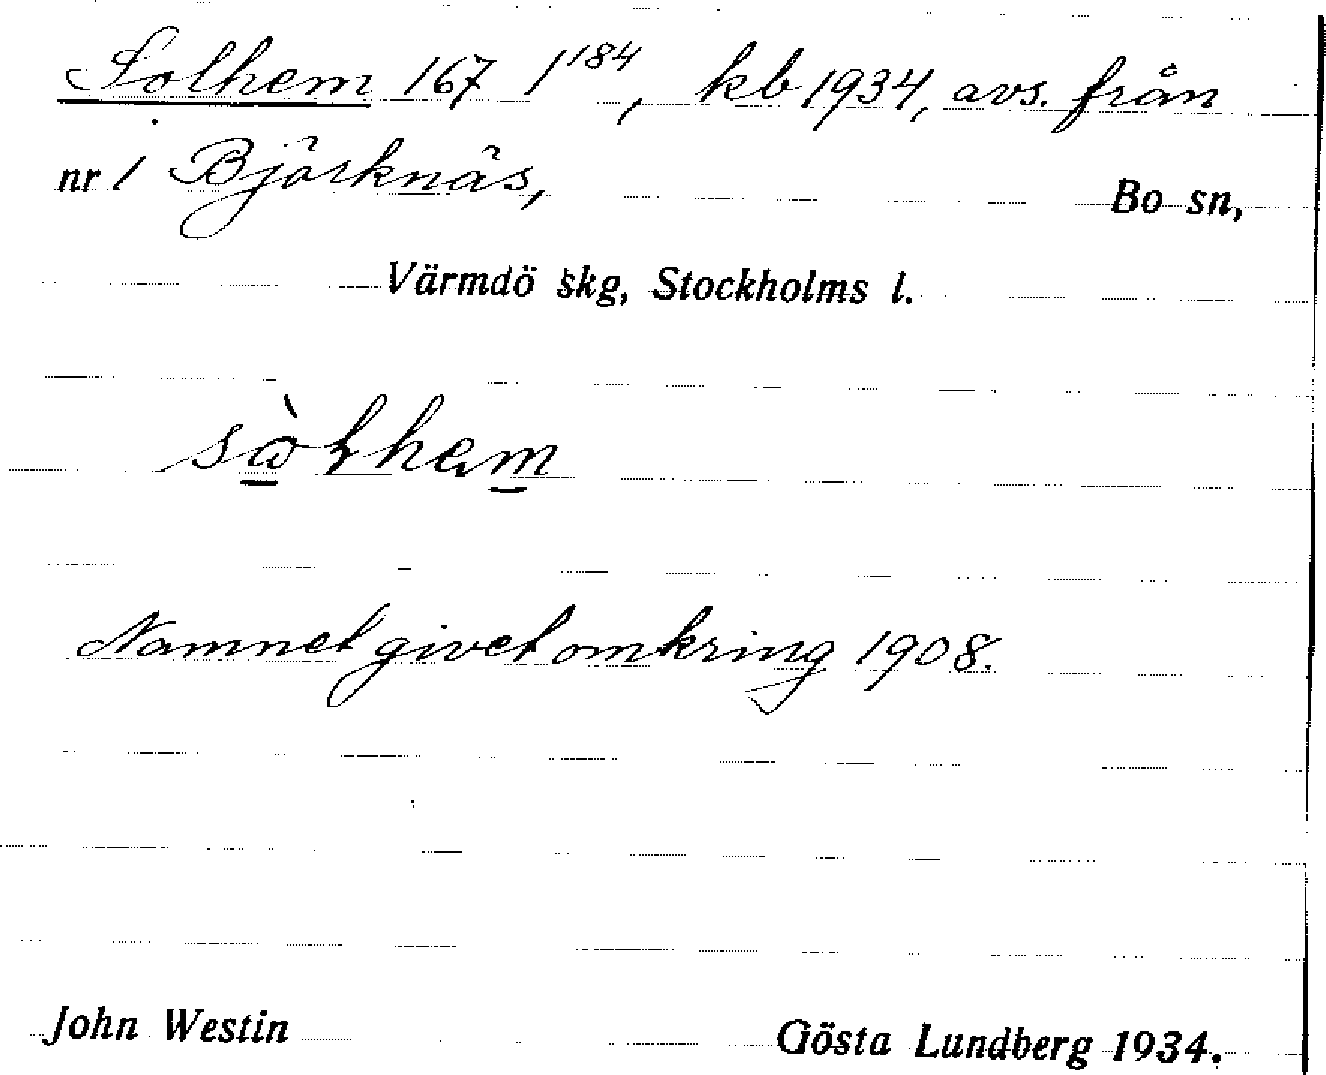 Solhem 167 1¹⁸⁴, kb 1934, avs. från
nr 1 Björknäs, Bo sn,
Värmdö skg, Stockholms l.
Namnet givet omkring 1908.
John Westin Gösta Lundberg 1934.